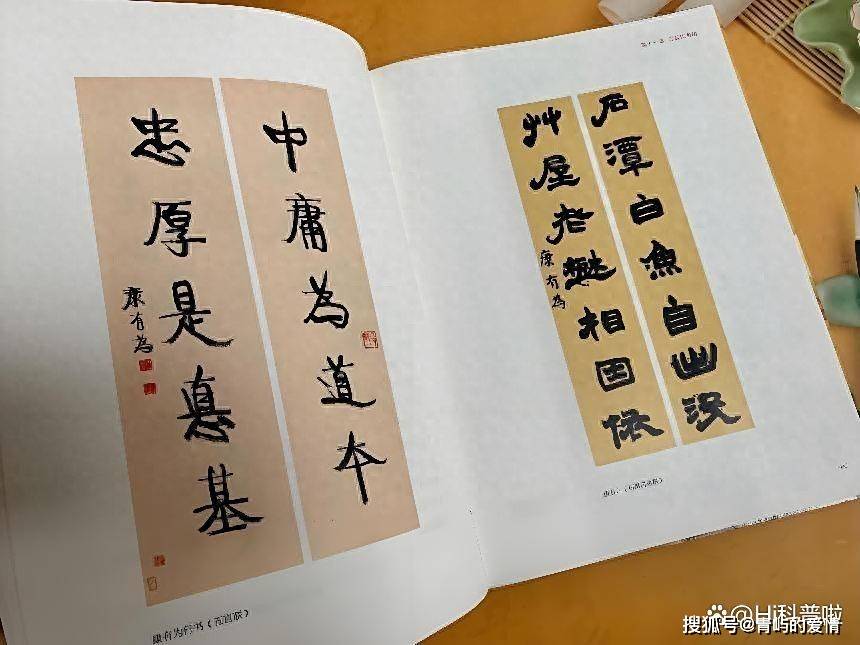 中庸為道本
忠厚是惪基
康有為
康有为行书《五言联》
石潭白魚自出没
艸屋老相因依
康有為
Hi科普啦
搜狐号@青屿的爱情